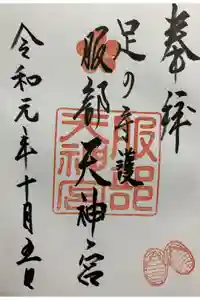 奉拝
足の守護
服部天神宮
令和元年十月五日
服部天神宮